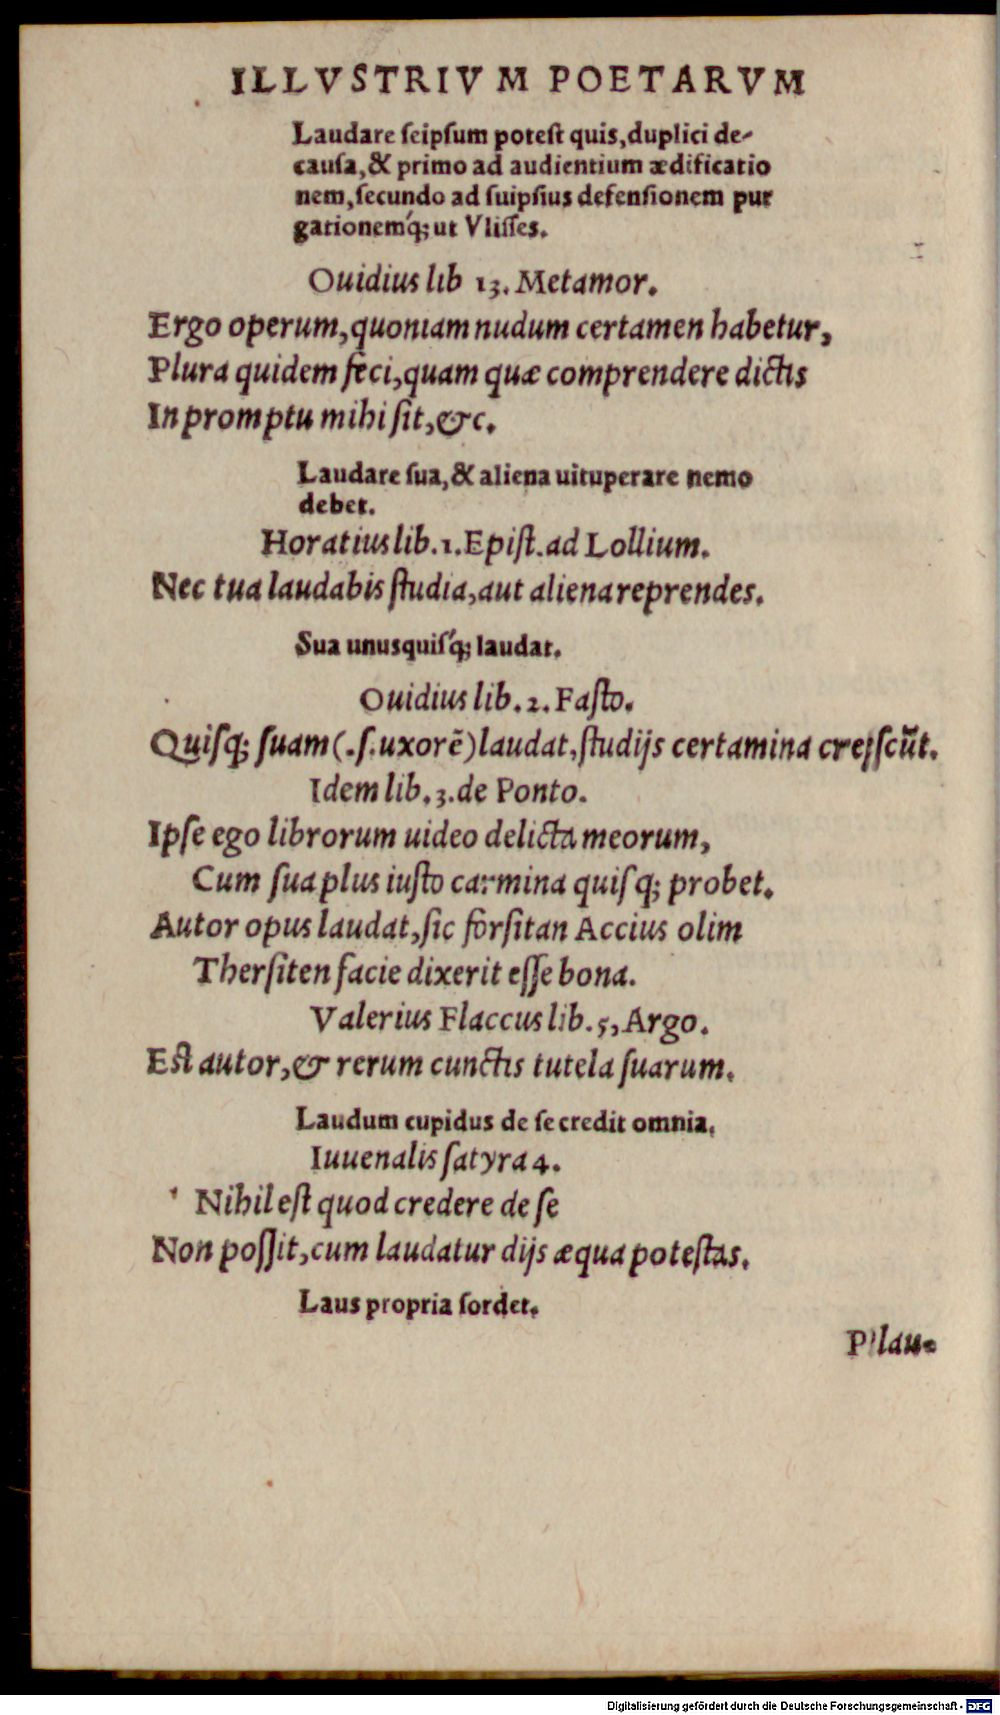 ILLVSTRIVM POETARVM
Laudare ſeipſum poteſt quis, duplici de-
cauſa, & primo ad audientium ædificatio
nem, ſecundo ad ſuipſius defenſionem pur
gationemq́; ut Vliſſes.
Ouidius lib 13. Metamor.
Ergo operum, quoniam nudum certamen habetur,
Plura quidem feci, quam quæ comprendere dictis
In promptu mihi ſit, &c.
Laudare ſua, & aliena uituperare nemo
debet.
Horatius lib. 1. Epiſt. ad Lollium.
Nec tua laudabis ſtudia, aut aliena reprendes.
Sua unusquiſq́; laudat.
Ouidius lib. 2. Faſto.
Quiſq; ſuam (.ſ. uxorē) laudat, ſtudijs certamina creſſcūt.
Idem lib. 3. de Ponto.
Ipſe ego librorum uideo delicta meorum,
Cum ſua plus iuſto carmina quiſq; probet.
Autor opus laudat, ſic forſitan Accius olim
Therſiten facie dixerit eſſe bona.
Valerius Flaccus lib. 5, Argo.
Eſt autor, & rerum cunctis tutela ſuarum.
Laudum cupidus de ſe credit omnia.
Iuuenalis ſatyra 4.
Nihil eſt quod credere de ſe
Non poſſit, cum laudatur dijs æqua poteſtas.
Laus propria ſordet.
P lau-
Digitalisierung gefördert durch die Deutsche Forschungsgemeinschaft - DFG